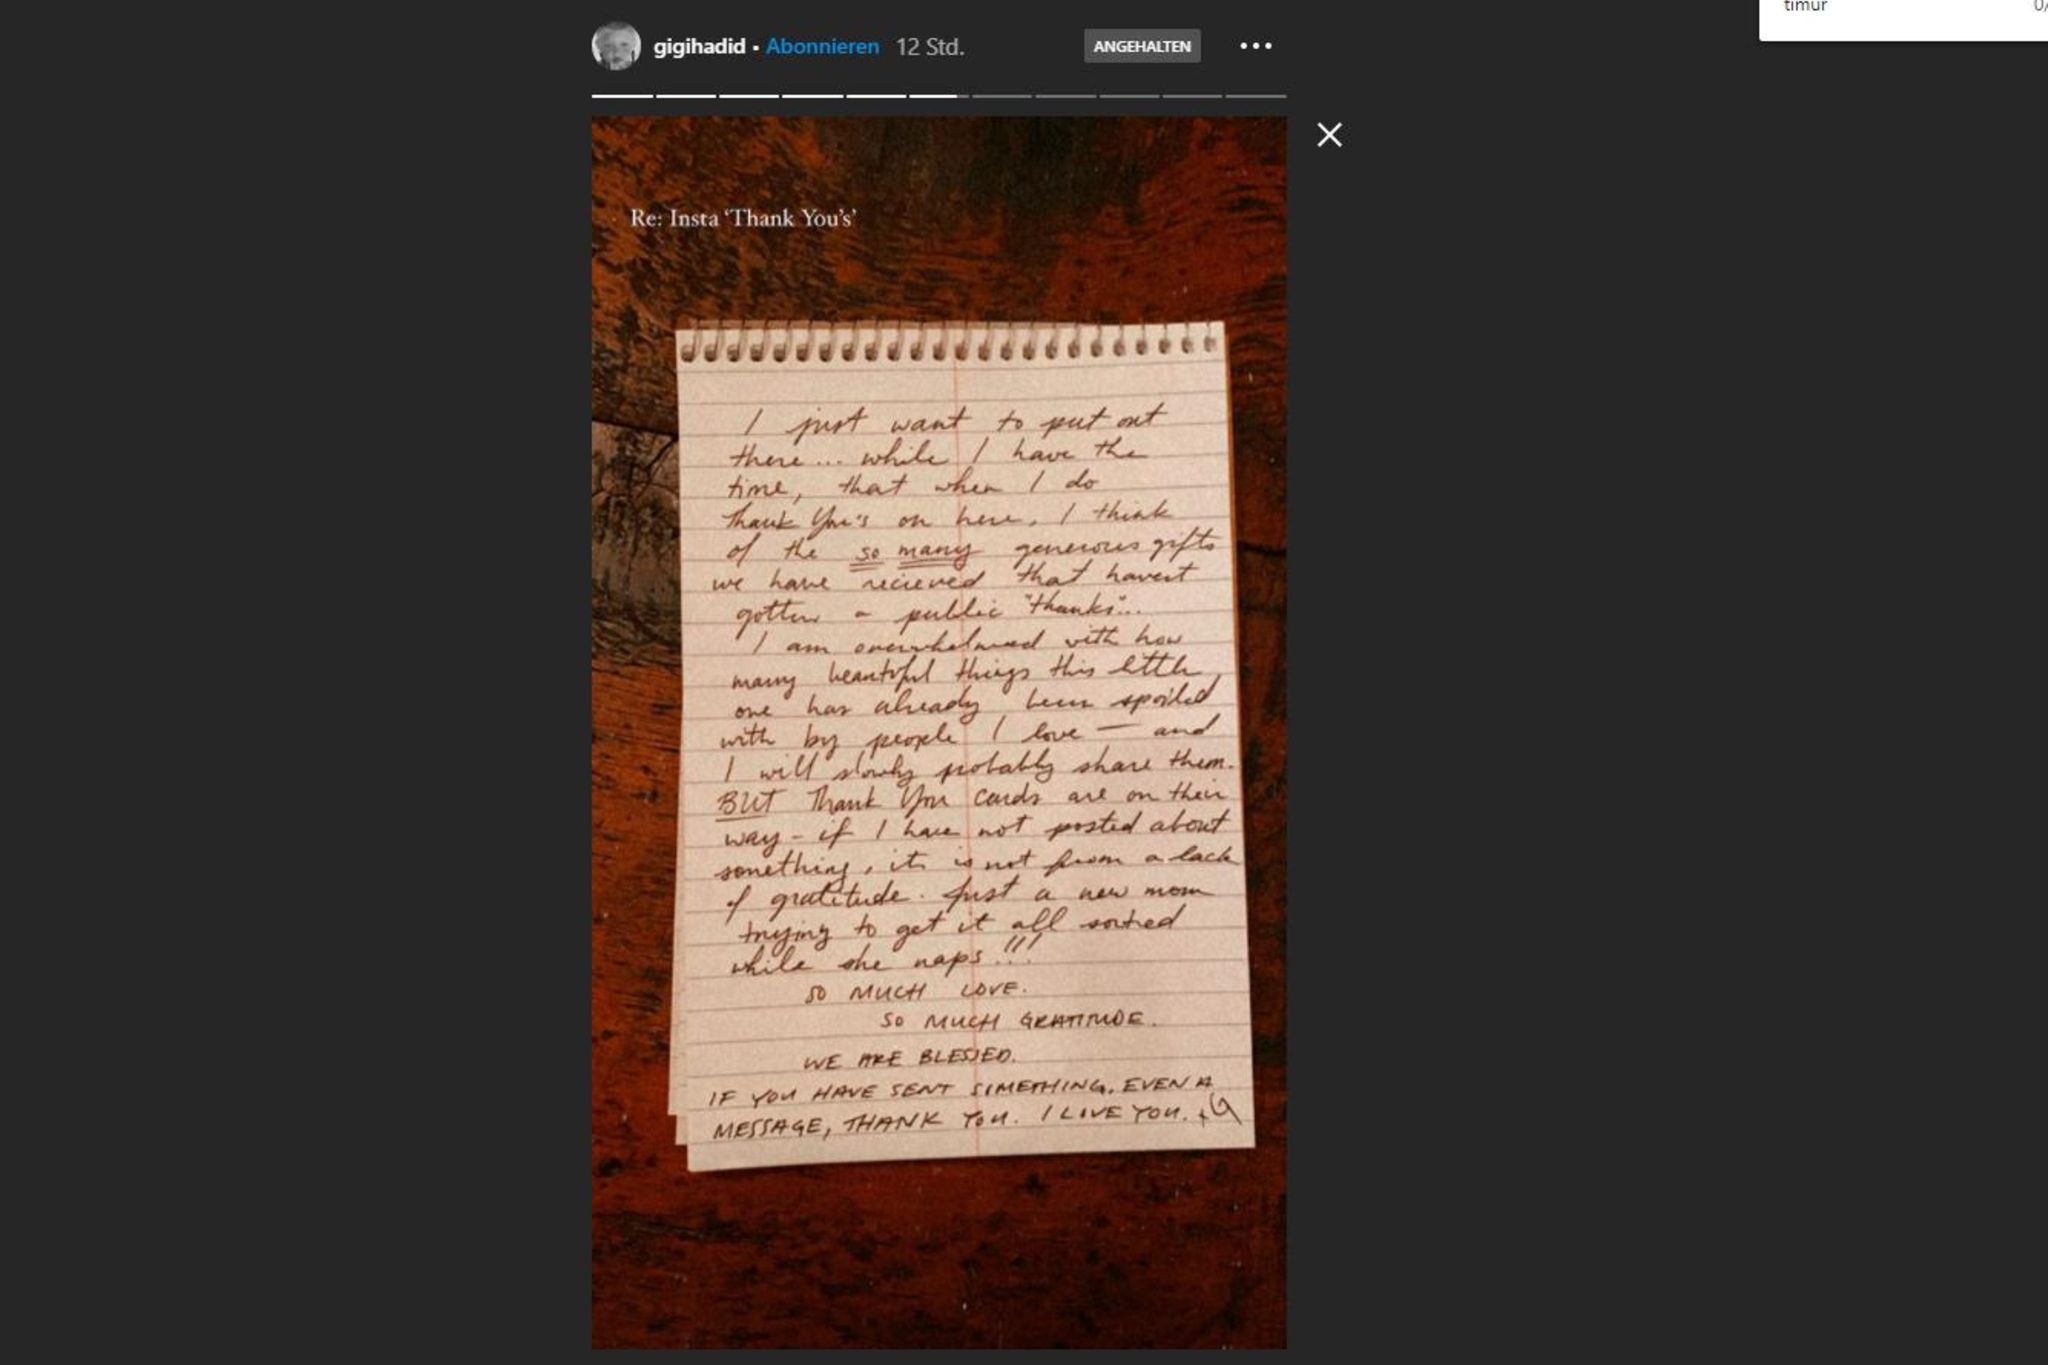 timur 0/
gigihadid • Abonnieren 12 Std. ANGEHALTEN
Re: Insta ‘Thank You’s’
I just want to put out
there... while I have the
time, that when I do
Thank You's on here, I think
of the so many generous gifts
we have recieved that havent
gotten a public "thanks"...
I am overwhelmed with how
many beautiful things this little
one has already been spoiled
with by people I love — and
I will slowly probably share them.
BUT Thank You cards are on their
way - if I have not posted about
something, its is not from a lack
of gratitude. Just a new mom
trying to get it all sorted
while she naps!!!
SO MUCH LOVE.
SO MUCH GRATITUDE.
WE ARE BLESSED.
IF YOU HAVE SENT SOMETHING, EVEN A
MESSAGE, THANK YOU. I LOVE YOU. +G